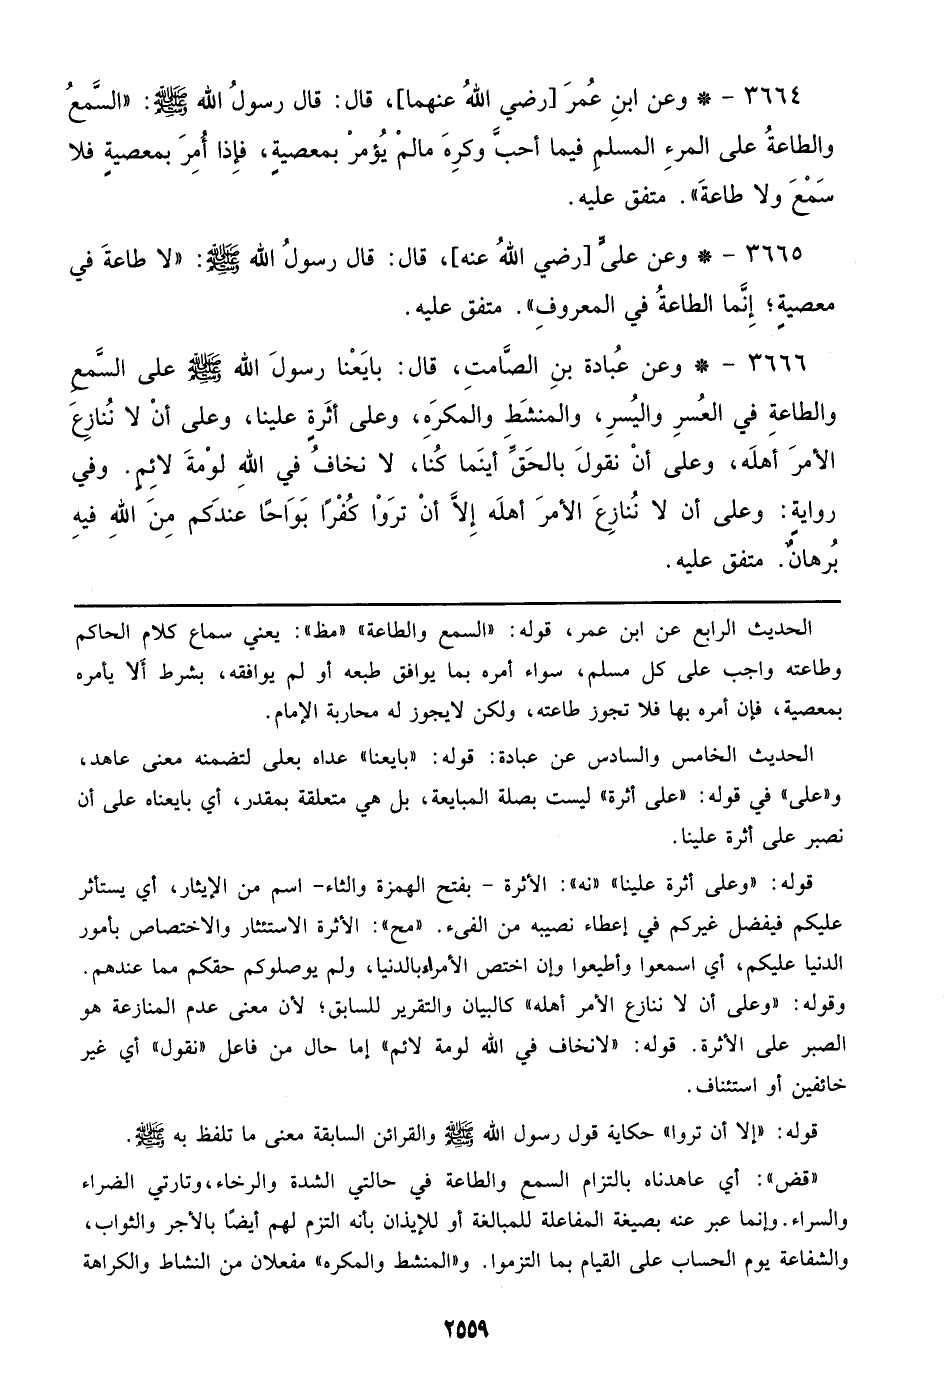 ٣٦٦٤ – * وعن ابنِ عُمرَ [رضي اللهُ عنهما]، قال: قال رسولُ الله ﷺ: «السَّمعُ
والطاعةُ على المرءِ المسلمِ فيما أحبَّ وكرِهَ مالمْ يُؤمرْ بمعصيةٍ، فإِذا أُمِرَ بمعصيةٍ فلا
سَمْعَ ولا طاعةَ». متفق عليه.
٣٦٦٥ – * وعن عليٍّ [رضي اللهُ عنه]، قال: قال رسولُ الله ﷺ: «لا طاعةَ في
معصيةٍ؛ إِنَّما الطاعةُ في المعروفِ». متفق عليه.
٣٦٦٦ – * وعن عُبادة بنِ الصَّامتِ، قال: بايَعْنا رسولَ الله ﷺ على السَّمعِ
والطاعةِ في العُسرِ واليُسرِ، والمنشَطِ والمكرَهِ، وعلى أثَرةٍ علينا، وعلى أنْ لا نُنازِعَ
الأمرَ أهلَه، وعلى أنْ نقولَ بالحَقِّ أينَما كُنا، لا نخافُ في اللهِ لوْمةَ لائِمٍ. وفي
روايةٍ: وعلى أن لا نُنازِعَ الأمرَ أهلَه إِلاَّ أنْ تروَْا كُفْرًا بَوَاحًا عندَكم مِنَ اللهِ فيهِ
بُرهانٌ. متفق عليه.
الحديث الرابع عن ابن عمر، قوله: «السمع والطاعة» «مظ»: يعني سماع كلام الحاكم
وطاعته واجب على كل مسلم، سواء أمره بما يوافق طبعه أو لم يوافقه، بشرط ألا يأمره
بمعصية، فإن أمره بها فلا تجوز طاعته، ولكن لايجوز له محاربة الإمام.
الحديث الخامس والسادس عن عبادة: قوله: «بايعنا» عداه بعلى لتضمنه معنى عاهد،
و«على» في قوله: «على أثرة» ليست بصلة المبايعة، بل هي متعلقة بمقدر، أي بايعناه على أن
نصبر على أثرة علينا.
قوله: «وعلى أثرة علينا» «نه»: الأثرة – بفتح الهمزة والثاء– اسم من الإيثار، أي يستأثر
عليكم فيفضل غيركم في إعطاء نصيبه من الفىء. «مح»: الأثرة الاستئثار والاختصاص بأمور
الدنيا عليكم، أي اسمعوا وأطيعوا وإن اختص الأمراءبالدنيا، ولم يوصلوكم حقكم مما عندهم.
وقوله: «وعلى أن لا ننازع الأمر أهله» كالبيان والتقرير للسابق؛ لأن معنى عدم المنازعة هو
الصبر على الأثرة. قوله: «لانخاف في الله لومة لائم» إما حال من فاعل «نقول» أي غير
خائفين أو استئناف.
قوله: «إلا أن تروا» حكاية قول رسول الله ﷺ والقرائن السابقة معنى ما تلفظ به ﷺ.
«قض»: أي عاهدناه بالتزام السمع والطاعة في حالتي الشدة والرخاء،وتارتي الضراء
والسراء.وإنما عبر عنه بصيغة المفاعلة للمبالغة أو للإيذان بأنه التزم لهم أيضًا بالأجر والثواب،
والشفاعة يوم الحساب على القيام بما التزموا. و«المنشط والمكره» مفعلان من النشاط والكراهة
٢٥٥٩